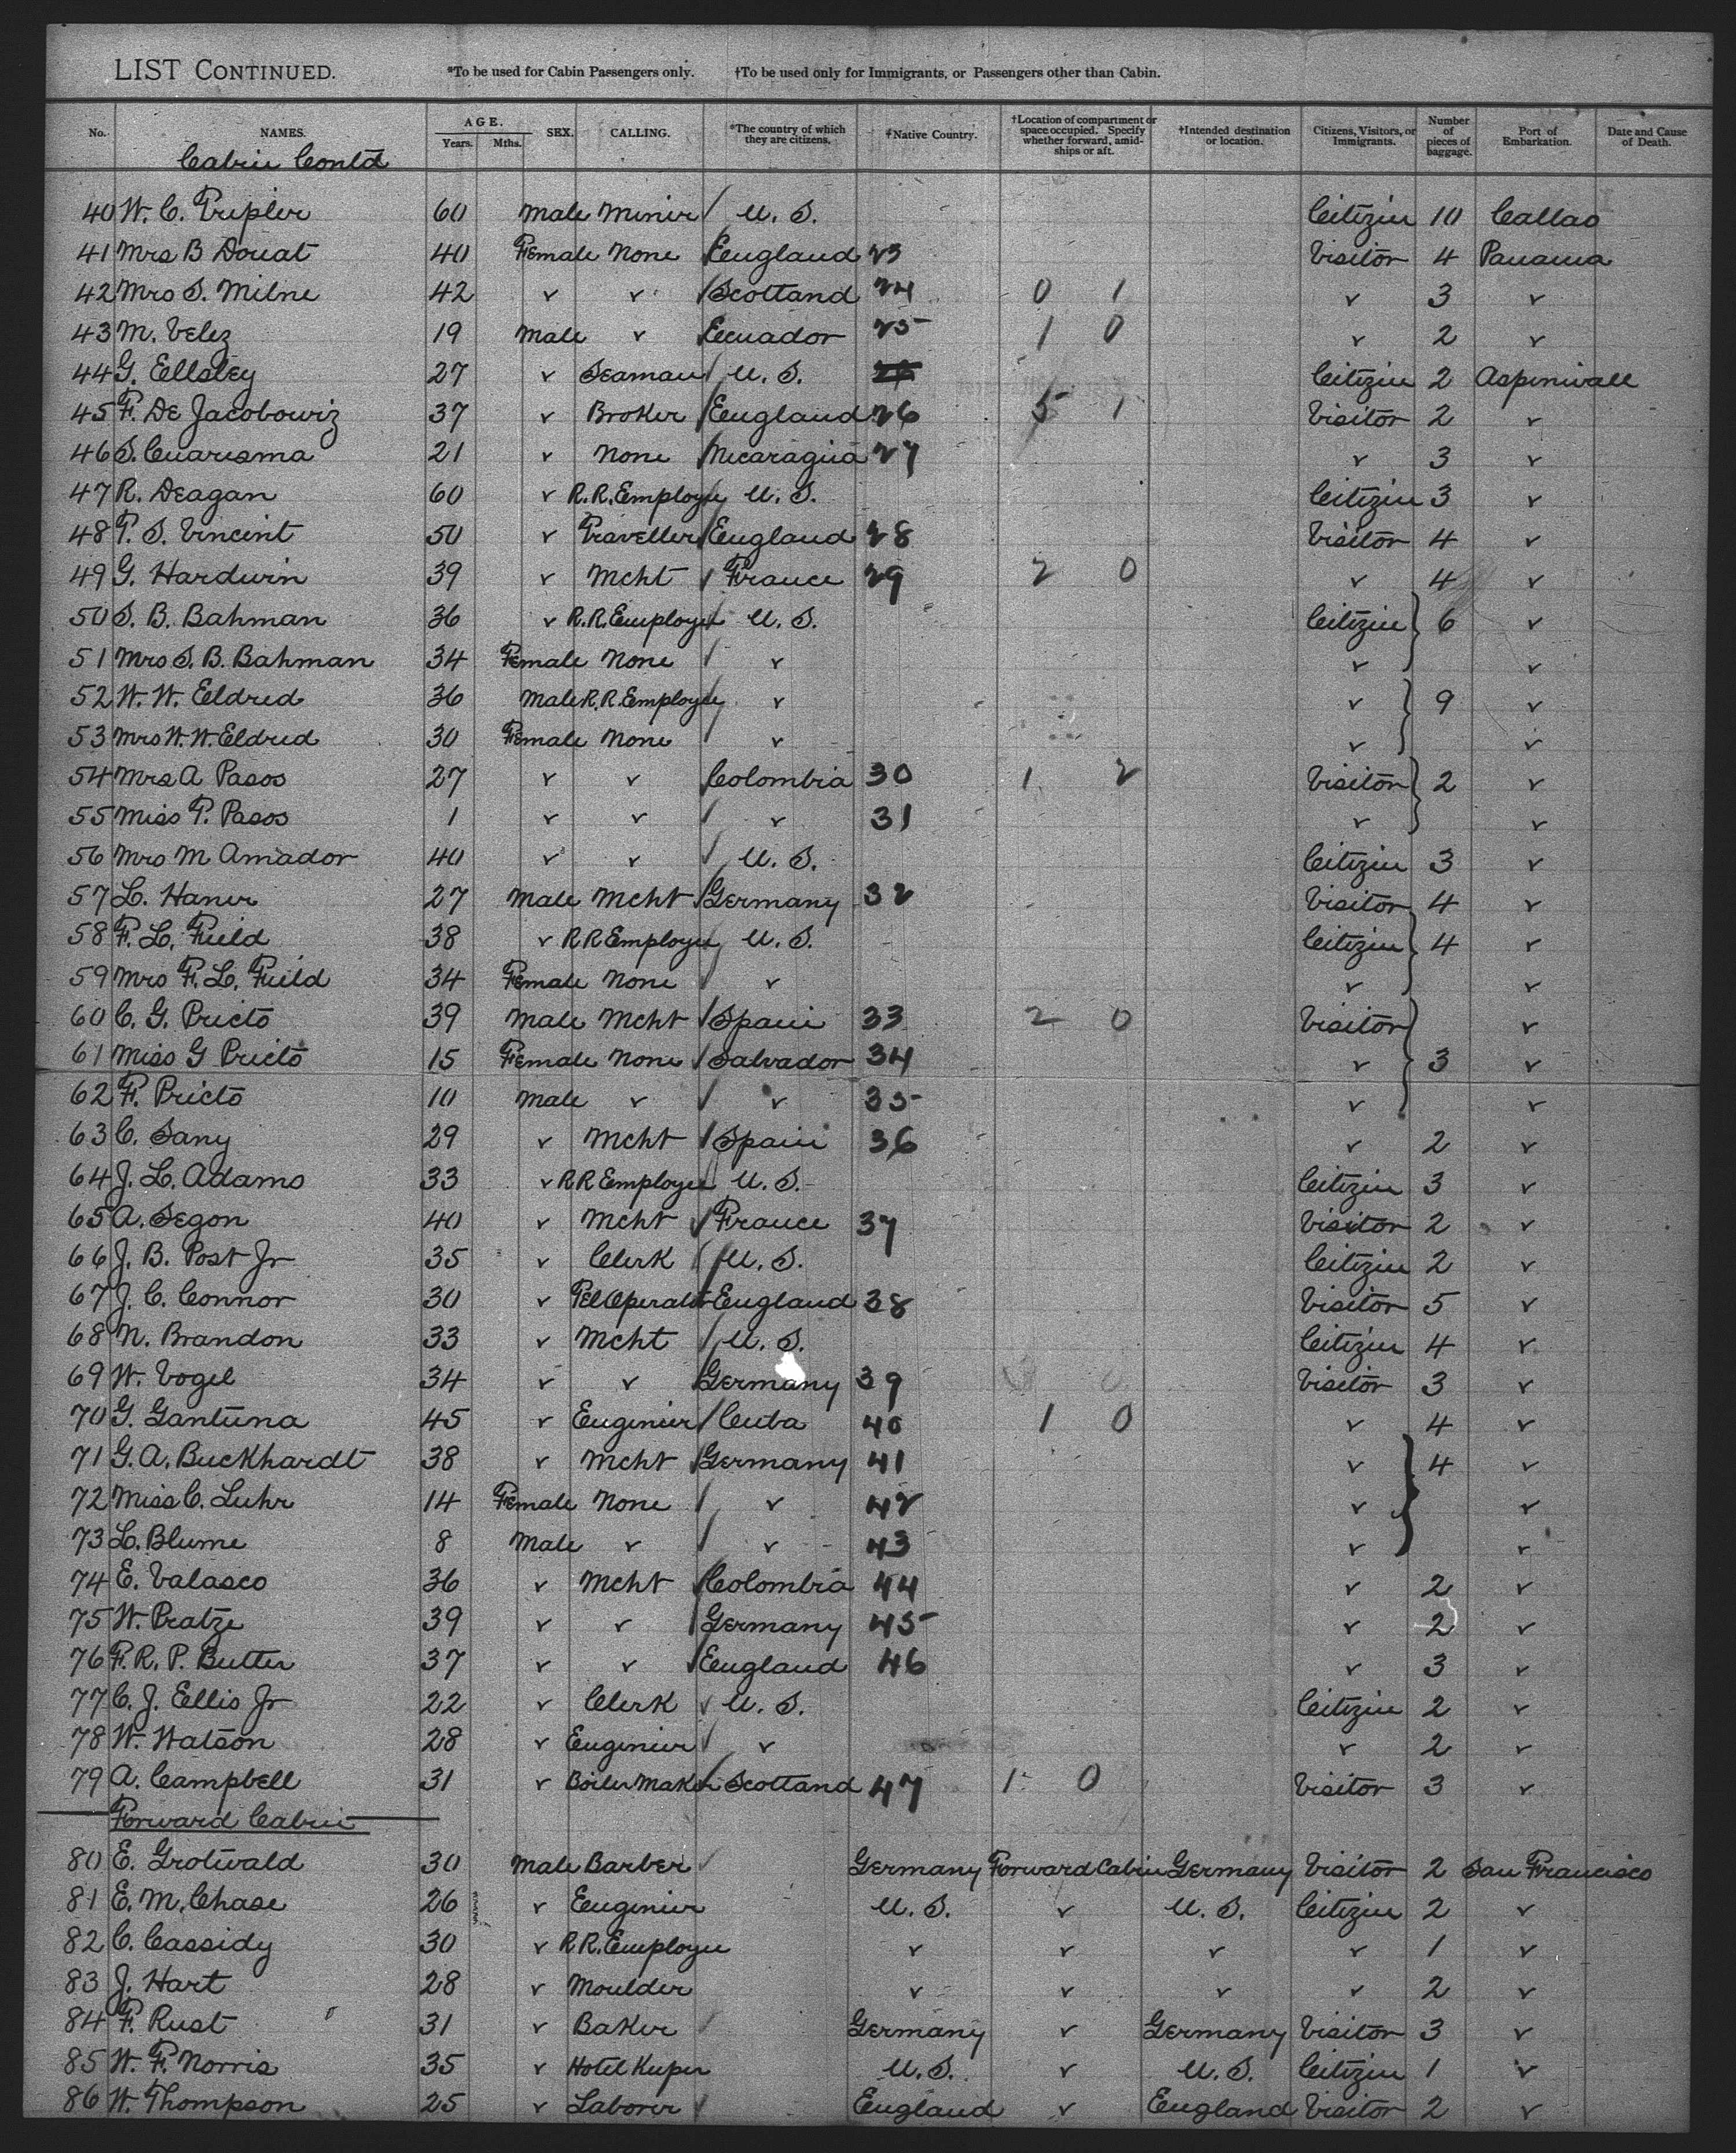 LIST CONTINUED. *To be used for Cabin Passengers only. †To be used only for Immigrants, or Passengers other than Cabin.
No. NAMES. AGE. Years. Mths. SEX. CALLING. *The country of which they are citizens. †Native Country. †Location of compartment or space occupied. Specify whether forward, amidships or aft. †Intended destination or location. Citizens, Visitors, or Immigrants. Number of pieces of baggage. Port of Embarkation. Date and Cause of Death.
Cabin Contd
40 W. C. Tripler 60 Male Miner / U. S. Citizen 10 Callao
41 Mrs B Douat 40 Female None / England 23 Visitor 4 Panama
42 Mrs S. Milne 42 v v / Scotland 24 0 1 v 3 v
43 M. Velez 19 Male v / Ecuador 25 1 0 v 2 v
44 G. Ellsley 27 v Seaman / U. S. Citizen 2 Aspinwall
45 F. De Jacobowiz 37 v Broker / England 26 5 1 Visitor 2 v
46 S. Cuarisma 21 v None / Nicaragua 27 v 3 v
47 R. Deagan 60 v R.R. Employee / U. S. Citizen 3 v
48 T. S. Vincent 50 v Traveller / England 28 Visitor 4 v
49 G. Hardwin 39 v Mcht / France 29 2 0 v 4 v
50 S. B. Bahman 36 v R.R. Employee / U. S. Citizen } 6 v
51 Mrs S. B. Bahman 34 Female None / v v v
52 W. W. Eldred 36 Male R.R. Employee / v v } 9 v
53 Mrs W. W. Eldred 30 Female None / v v v
54 Mrs A Pasos 27 v v / Colombia 30 1 2 Visitor } 2 v
55 Miss P. Pasos 1 v v / v 31 v v
56 Mrs M Amador 40 v v / U. S. Citizen 3 v
57 L. Haner 27 Male Mcht / Germany 32 Visitor 4 v
58 F. L. Field 38 v R R Employee / U. S. Citizen } 4 v
59 Mrs F. L. Field 34 Female None / v v v
60 C. G. Prieto 39 Male Mcht / Spain 33 2 0 Visitor } v
61 Miss G Prieto 15 Female None / Salvador 34 v 3 v
62 F. Prieto 10 Male v / v 35 v v
63 C. Sany 29 v Mcht / Spain 36 v 2 v
64 J. L. Adams 33 v R R Employee / U. S. Citizen 3 v
65 A. Segon 40 v Mcht / France 37 Visitor 2 v
66 J. B. Post Jr 35 v Clerk / U. S. Citizen 2 v
67 J. C. Connor 30 v Tel Operator England 38 Visitor 5 v
68 N. Brandon 33 v Mcht / U. S. Citizen 4 v
69 W. Vogel 34 v v Germany 39 Visitor 3 v
70 G. Gantuna 45 v Engineer / Cuba 40 1 0 v 4 v
71 G. A. Buckhardt 38 v Mcht / Germany 41 v } 4 v
72 Miss C. Luhr 14 Female None / v 42 v v
73 L. Blume 8 Male v / v 43 v v
74 E. Valasco 36 v Mcht / Colombia 44 v 2 v
75 W. Pratze 39 v v / Germany 45 v 2 v
76 F. R. P. Butter 37 v v / England 46 v 3 v
77 C. J. Ellis Jr 22 v Clerk / U. S. Citizen 2 v
78 W. Watson 28 v Engineer / v v 2 v
79 A. Campbell 31 v Boiler Maker / Scotland 47 1 0 Visitor 3 v
Forward Cabin
80 E. Grotwald 30 Male Barber / Germany Forward Cabin Germany Visitor 2 San Francisco
81 E. M. Chase 26 v Engineer U. S. v U. S. Citizen 2 v
82 C. Cassidy 30 v R R. Employee v v v v 1 v
83 J. Hart 28 v Moulder v v v v 2 v
84 F. Rust 31 v Baker / Germany v Germany Visitor 3 v
85 W. F. Norris 35 v Hotel Keeper U. S. v U. S. Citizen 1 v
86 W. Thompson 25 v Laborer / England v England Visitor 2 v